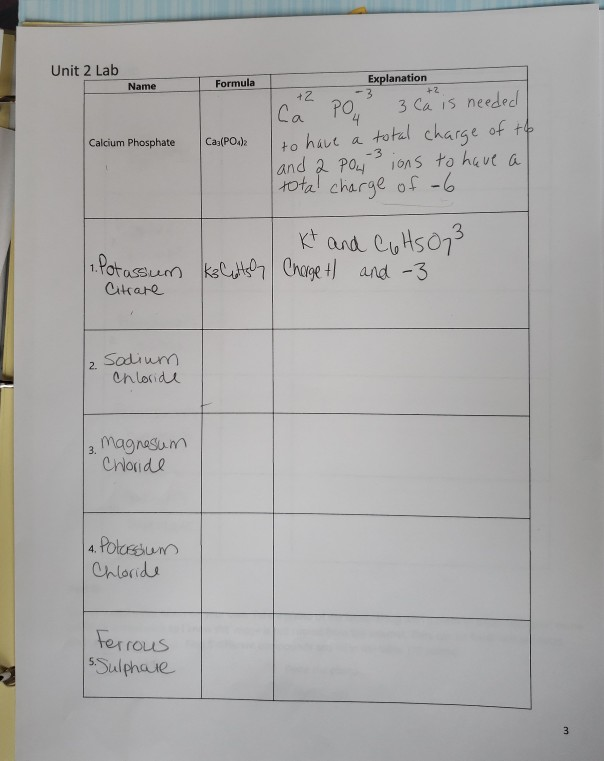 Unit 2 Lab
Name Formula Explanation
Calcium Phosphate Ca₃(PO₄)₂
Ca⁺² PO₄⁻³ 3 Ca⁺² is needed
to have a total charge of +6
and 2 PO₄⁻³ ions to have a
total charge of -6
1. Potassium
Citrate
K₃C₆H₅O₇
K⁺ and C₆H₅O₇³
Charge +1 and -3
2. Sodium
Chloride
3. Magnesum
Chloride
4. Potassium
Chloride
Ferrous
5. Sulphate
3